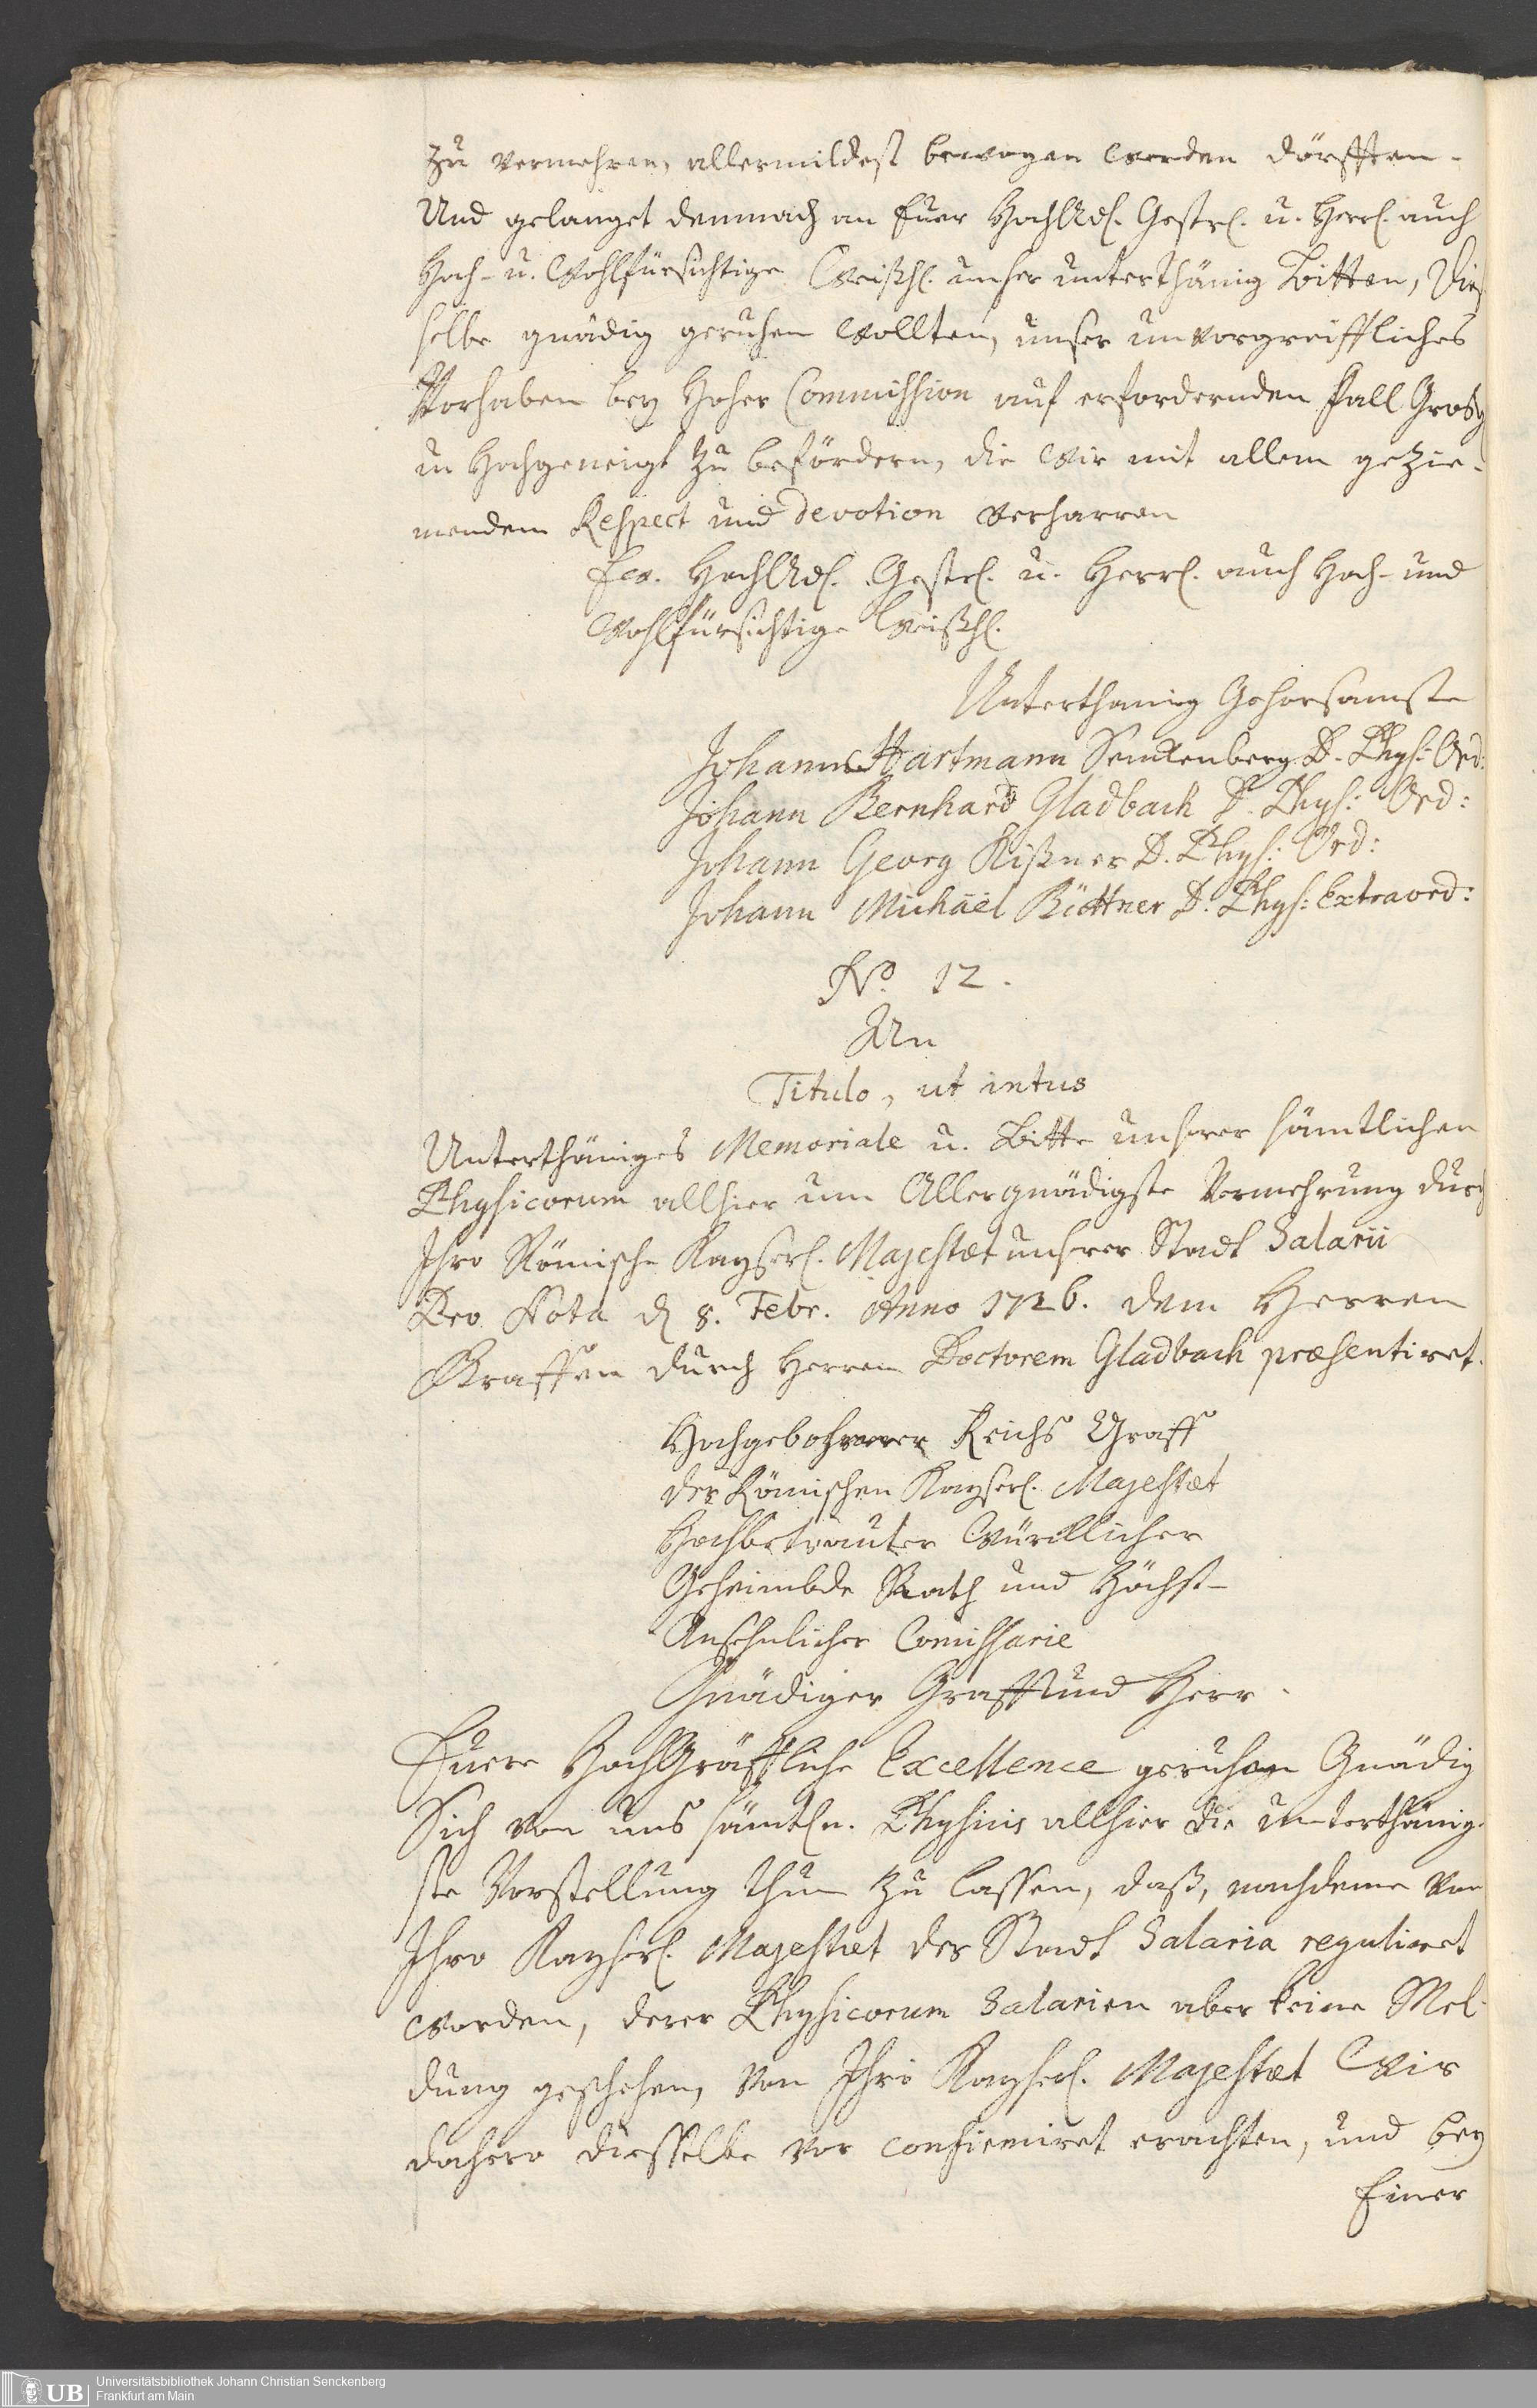 zu vermehren, allermildest bewogen werden dörfften.
Und gelanget demnach an Euer HochEdl. Gestrl. u. Herrl. auch
Hoch- u. Wohlfürsichtige Weißhl. unser unterthänig Bitten, Die
selbe gnädig geruhen wollten, unser unvorgreiffliches
Vorhaben bey Hoher Commission auf erfordernden Fall Grosg
u Hochgeneigt zu befördern, die Wir mit allem gezie-
mendem Respect und devotion verharren
Ew. HochEdl. Gestrl. u. Herrl. auch Hoch- und
Wohlfürsichtige Weißhl.
Unterthanig Gehorsamste
Johann Hartmann Senckenberg D. Phys: Ord:
Johann Bernhard Gladbach D. Phys: Ord:
Johann Georg Kißner D. Phys: Ord:
Johann Michäel Büttner D. Phys: Extraord:
No. 12.
An
Titulo, ut intus
Unterthäniges Memoriale u. Bitte unserer sämtlichen
Physicorum allhier um Allergnädigste Vermehrung durch
Ihro Römische Kayserl. Majestæt unserer Stadt Salarii
Pro Nota d 8. Febr. Anno 1726. dem Herren
Graffen durch Herren Doctorem Gladbach præsentiret.
Hochgebohrner Reichs Graff
der Römischen Kayserl. Majestæt
Hochbetrauter Würcklicher
Geheimbde Rath und Höchst-
Ansehnlicher Comissarie
Gnädiger Graff und Herr.
Euere HochGräffliche Excellence geruhen Gnädig
Sich von uns sämtln. Physicis allhier die unterthänig-
ste Vorstellung thun zu lassen, daß, nachdeme von
Ihro Kayserl. Majestæt der Stadt Salaria reguliret
worden, derer Physicorum Salarien aber keine Mel-
dung geschehen, von Ihro Kayserl. Majestæt Wir
dahero diesselbe vor confirmiret erachten, und bey
Einer
Universitätsbibliothek Johann Christian Senckenberg
UB Frankfurt am Main